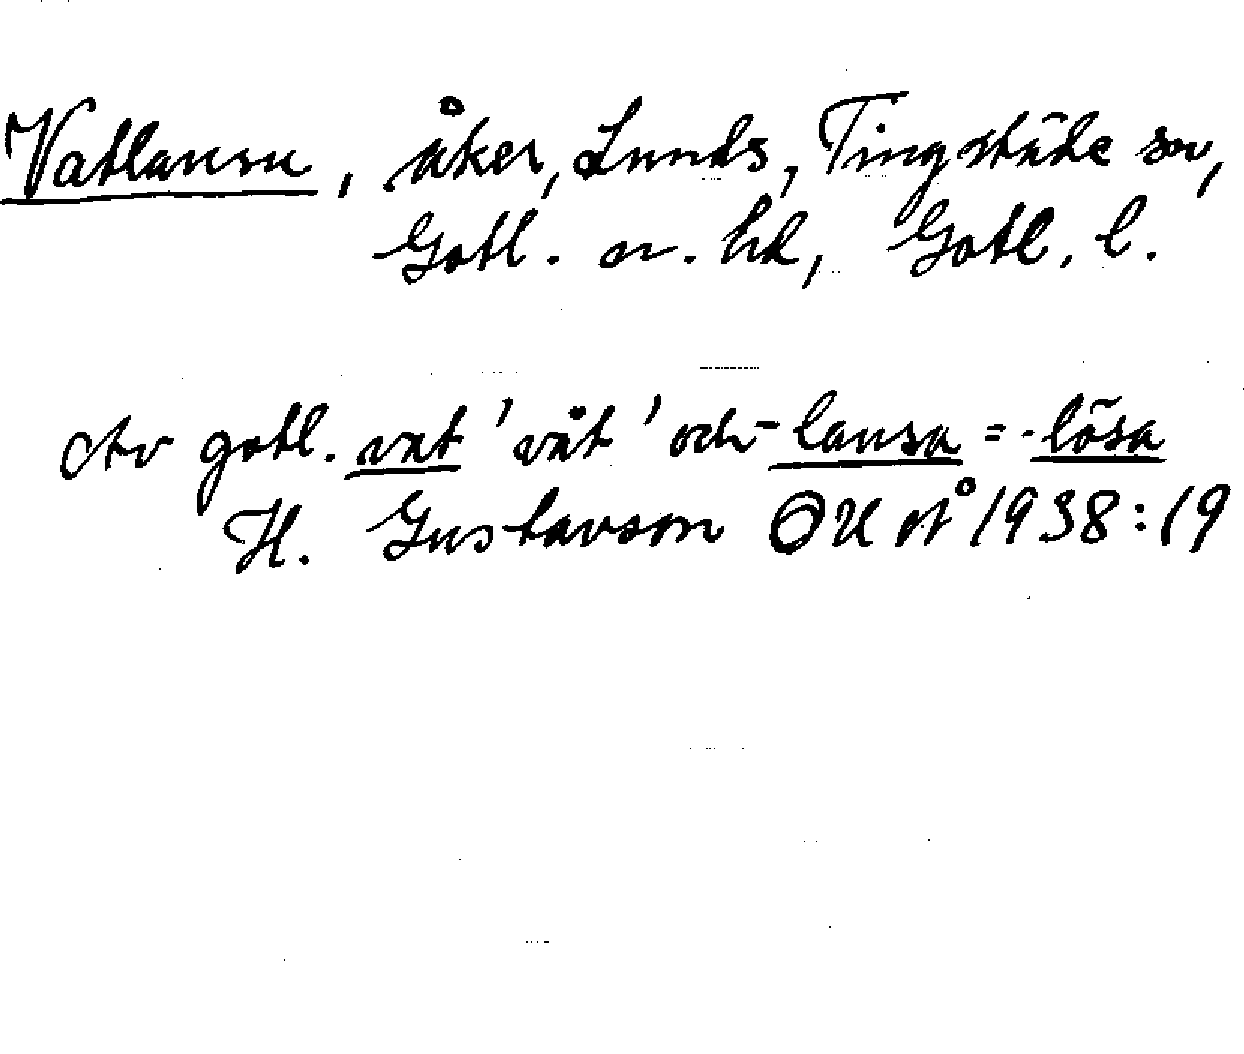 Vatlausu, åker, Lunds, Tingstäde sn,
Gotl. n. hd, Gotl. l.
Av gotl. vat 'våt' och -lausa = -lösa
H. Gustavson OUÅ 1938:19